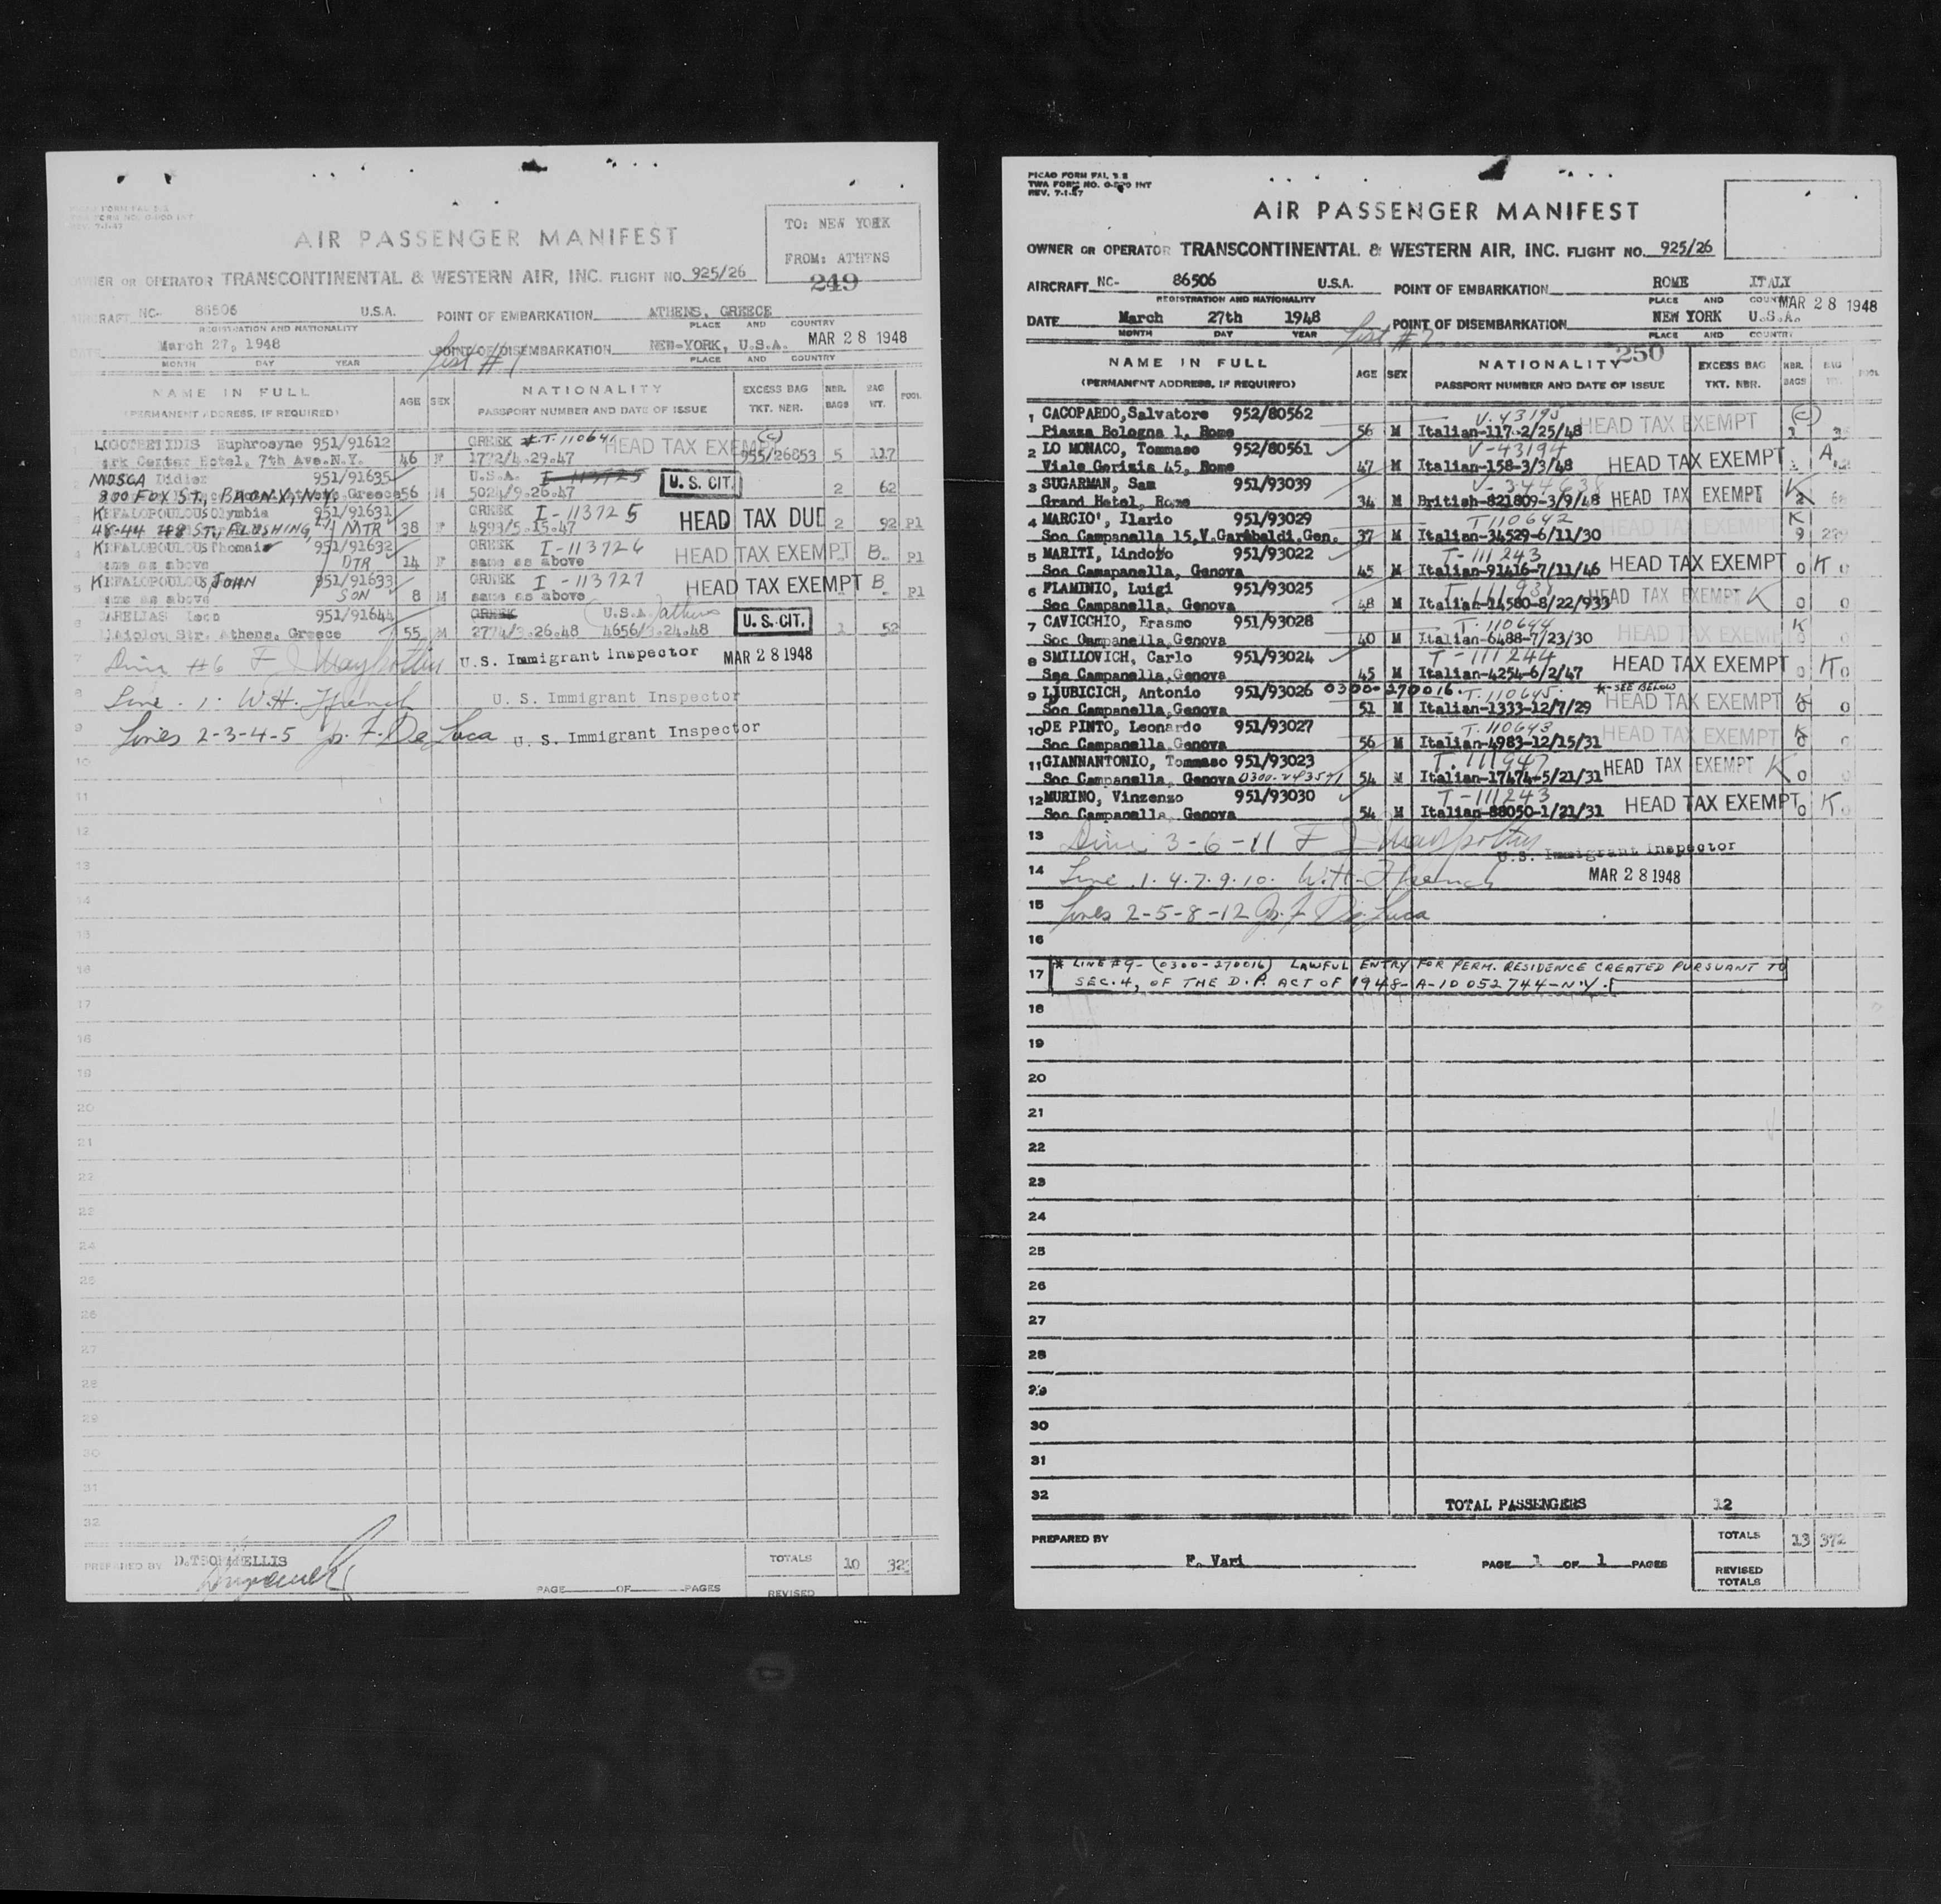 TO: NEW YORK
FROM: ATHENS
249
AIR PASSENGER MANIFEST
OWNER OR OPERATOR TRANSCONTINENTAL & WESTERN AIR, INC. FLIGHT NO. 925/26
AIRCRAFT NC- 86506 U.S.A. POINT OF EMBARKATION ATHENS, GREECE
REGISTRATION AND NATIONALITY PLACE AND COUNTRY
DATE March 27, 1948 POINT OF DISEMBARKATION NEW-YORK, U.S.A. MAR 28 1948
MONTH DAY YEAR PLACE AND COUNTRY
NAME IN FULL AGE SEX NATIONALITY EXCESS BAG NBR. BAG POOL
(PERMANENT ADDRESS, IF REQUIRED) PASSPORT NUMBER AND DATE OF ISSUE TKT. NBR. BAGS WT.
LOGOTHETIDIS Euphrosyne 951/91612 GREEK HEAD TAX EXEMPT (C)
ark Center Hotel, 7th Ave.N.Y. 46 F 1772/4.29.47 955/26853 5 117
MOSCA Didier 951/91635 U.S.A. U. S. CIT.
800 FOX ST., BRONX, N.Y. 56 M 2 62
KEFALOPOULOUS Olympia 951/91631 GREEK I-113725 HEAD TAX DUE
48-44 FLUSHING, MTR 38 F 4993/5.15.47 2 92 Pl
KEFALOPOULOUS Thomais 951/91632 GREEK I-113726 HEAD TAX EXEMPT B.
same as above DTR 14 F same as above Pl
5 KEFALOPOULOUS JOHN 951/91633 GREEK I-113727 HEAD TAX EXEMPT B
same as above SON 8 M same as above Pl
951/91644 GREEK U.S.A. U. S. CIT.
Str. Athens, Greece 55 M 2774/3.26.48 4656/3.24.48 1 52
7 Line #6 U.S. Immigrant Inspector MAR 28 1948
8 Line . 1. W.H. French U. S. Immigrant Inspector
9 Lines 2-3-4-5 Jos. F. De Luca U. S. Immigrant Inspector
10
11
12
13
14
15
16
17
18
19
20
21
22
23
24
25
26
27
28
29
30
31
32
PREPARED BY TOTALS 10 323
PAGE OF PAGES REVISED
PICAO FORM FAL 2.2
TWA FORM NO. O-200 INT
REV. 7-1-47
AIR PASSENGER MANIFEST
OWNER OR OPERATOR TRANSCONTINENTAL & WESTERN AIR, INC. FLIGHT NO. 925/26
AIRCRAFT NC- 86506 U.S.A. POINT OF EMBARKATION ROME ITALY
REGISTRATION AND NATIONALITY PLACE AND COUNTRY MAR 28 1948
DATE March 27th 1948 POINT OF DISEMBARKATION NEW YORK U.S.A.
MONTH DAY YEAR PLACE AND COUNTRY
250
NAME IN FULL AGE SEX NATIONALITY EXCESS BAG NBR. BAG POOL
(PERMANENT ADDRESS, IF REQUIRED) PASSPORT NUMBER AND DATE OF ISSUE TKT. NBR. BAGS WT.
1 CACOPARDO, Salvatore 952/80562 V-43195 HEAD TAX EXEMPT (C)
Piazza Bologna 1, Rome 56 M Italian-117-2/25/48
2 LO MONACO, Tommaso 952/80561 V-43194 HEAD TAX EXEMPT A.
Viale Gorizia 45, Rome 47 M Italian-158-3/3/48
3 SUGARMAN, Sam 951/93039 HEAD TAX EXEMPT K
Grand Hotel, Rome 34 M British-821809-3/9/48 2
4 MARCIO', Ilario 951/93029 T110642 HEAD TAX EXEMPT K
Soc Campanella 15,V.Garibaldi,Gen. 37 M Italian-34529-6/11/30 9
5 MARITI, Lindoro 951/93022 T-111243 HEAD TAX EXEMPT K
Soc Camapanella, Genova 45 M Italian-91416-7/11/46 0 0
6 FLAMINIO, Luigi 951/93025 HEAD TAX EXEMPT K
Soc Campanella, Genova 48 M Italian-14580-8/22/933 0 0
7 CAVICCHIO, Erasmo 951/93028 T-110644 HEAD TAX EXEMPT K
Soc Campanella, Genova 40 M Italian-6488-7/23/30 0 0
8 SMILLOVICH, Carlo 951/93024 T-111244 HEAD TAX EXEMPT K
Soc Campanella,Genova 45 M Italian-4254-6/2/47 0 0
9 LJUBICICH, Antonio 951/93026 0300-270016. T.110645. *-SEE BELOW HEAD TAX EXEMPT K
Soc Campanella,Genova 51 M Italian-1333-12/7/29 0 0
10 DE PINTO, Leonardo 951/93027 T.110643 HEAD TAX EXEMPT K
Soc Campanella Genova 56 M Italian-4983-12/15/31 0 0
11 GIANNANTONIO, Tommaso 951/93023 HEAD TAX EXEMPT K
Soc Campanella, Genova 54 M Italian-17474-5/21/31 0 0
12 MURINO, Vinzenzo 951/93030 T-111243 HEAD TAX EXEMPT K
Soc Campanella, Genova 54 M Italian-88050-1/21/31 0 0
13 Line 3-6-11 U.S. Immigrant Inspector
14 Line .1.4.7.9.10. W.H. French MAR 28 1948
15 Lines 2-5-8-12 Jos. F. De Luca
16
17 * LINE #9- (0300-270016) LAWFUL ENTRY FOR PERM. RESIDENCE CREATED PURSUANT TO
SEC. 4, OF THE D.P. ACT OF 1948- A-10052744-N.Y.
18
19
20
21
22
23
24
25
26
27
28
29
30
31
32 TOTAL PASSENGERS 12
PREPARED BY F. Vari PAGE 1 OF 1 PAGES TOTALS 13 372
REVISED TOTALS